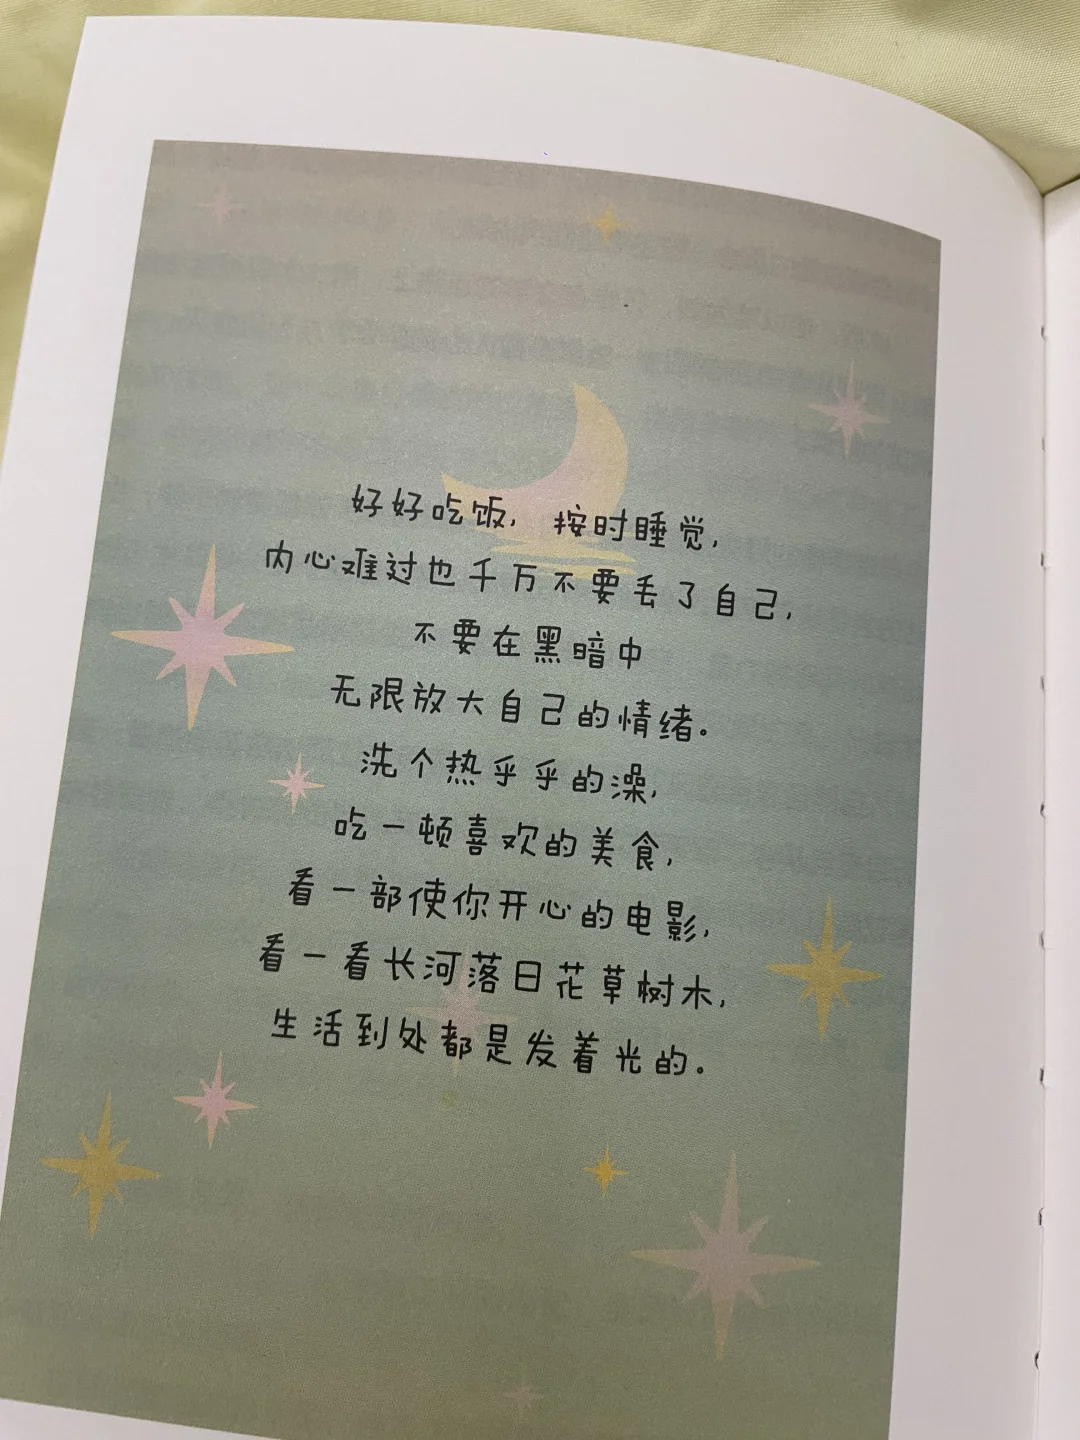 好好吃饭，按时睡觉，
内心难过也千万不要丢了自己，
不要在黑暗中
无限放大自己的情绪。
洗个热乎乎的澡，
吃一顿喜欢的美食，
看一部使你开心的电影，
看一看长河落日花草树木，
生活到处都是发着光的。